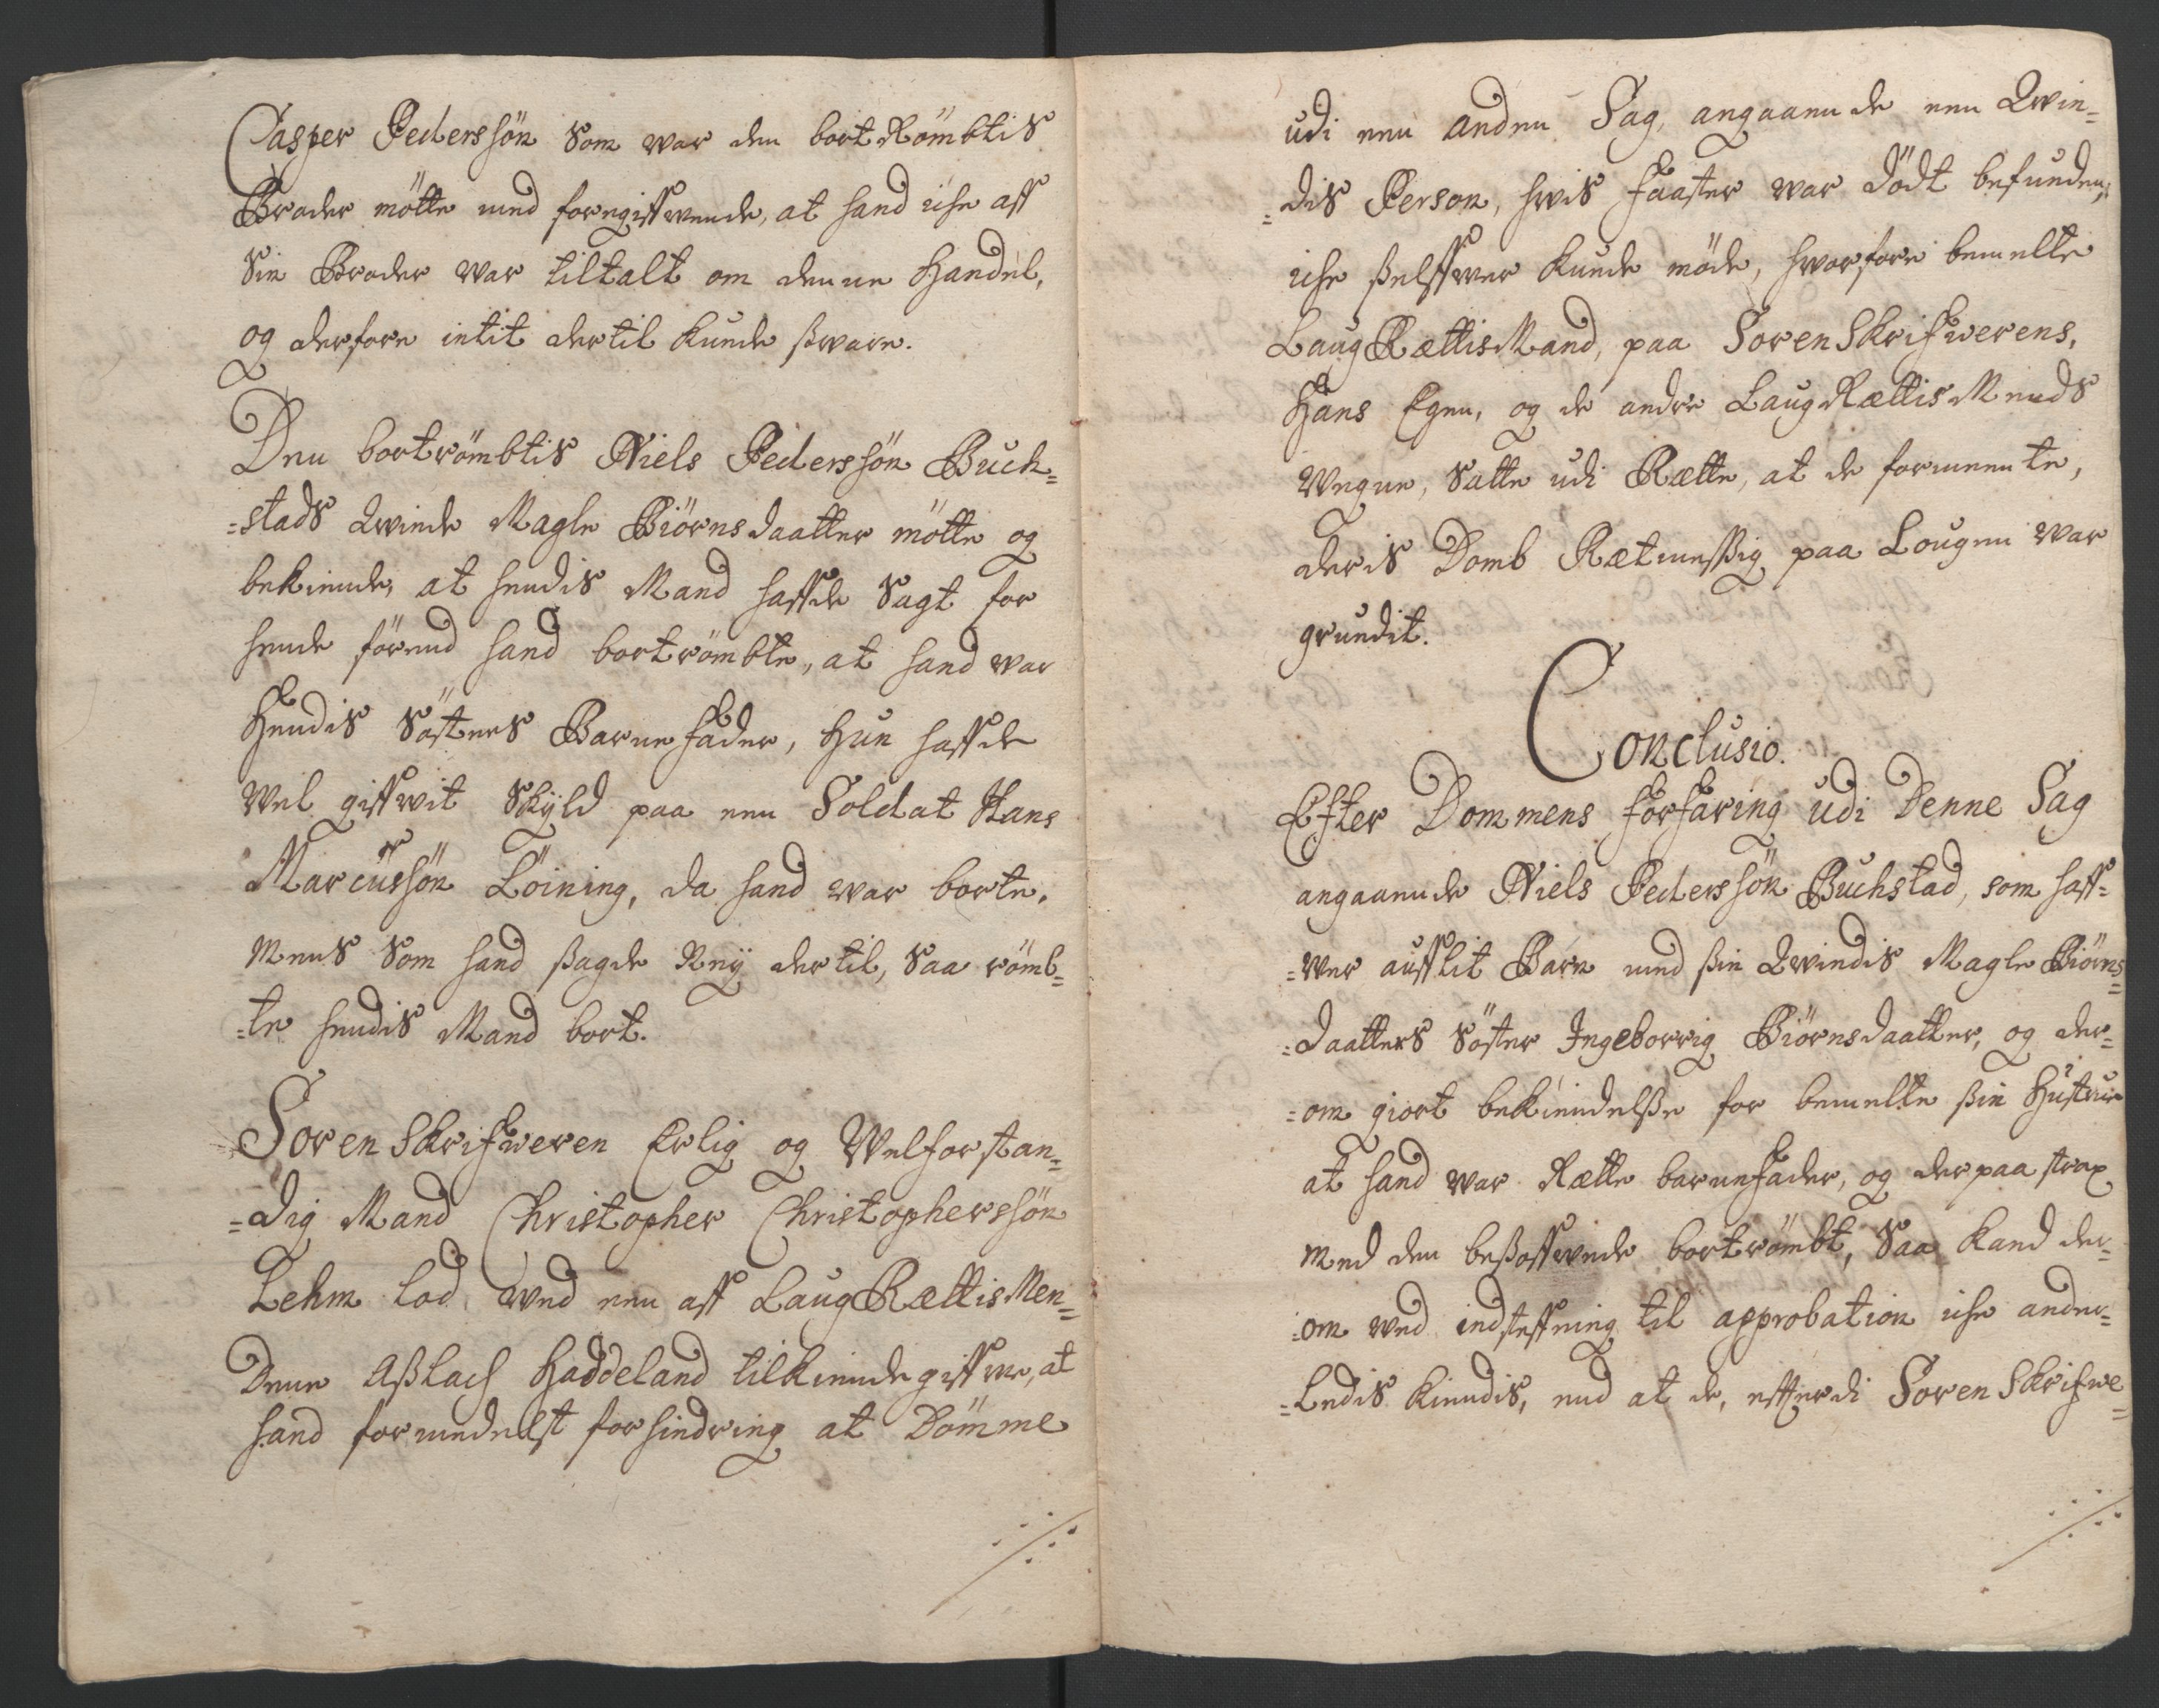 Casper Pederssön Som war den bortRömbtis
Broder mötte med foregiffwende, at hand iche aff
Sin Broder war tiltalt om denne Handel,
og derfore intit dertil kunde ßware.
Den bortrömbtis Niels Pederssön Buch=
=stads Qwinde Magle Biörnsdaatter mötte og
bekiende, at hendis Mand haffde Sagt for
hende förend hand bortrömbte, at hand war
Hendis Sösters Barnefader, Hun haffde
Wel giffwit Skyld paa een Soldat Hans
Marcussön Löining, da hand war borte,
Mens Som hand ßagde Neÿ dertil, Saa römb=
=te hendis Mand bort.
Sorenskrifweren Erlig og Welforstan=
=dig Mand Christopher Christopherssön
Lehm lod wed een aff LaugRættisMen=
Dene Aßlach Haddeland tilkiende giffwe, at
hand formedelst forhindring at Dömme
udi een anden Sag, angaaende een Qwin=
=dis Person, hwis Faaster war dödt befunden,
iche ßelffwer kunde möde, hworfore bemelte
LaugRættisMand, paa SorenSkrifwerens,
Hans Egen, og de andre LaugRættisMends
Wegne, Satte udi Rætte, at de formeente,
deris Domb Rætmessig paa Lougen war
grundit.
Conclusio.
Efter Dommens forfaring udi Denne Sag
angaaende Niels Pederssön Buchstad, som haff=
=wer aufflit Barn med ßin Qwindis Magle Biörns=
=daatters Söster Ingeborrig Biörnsdaatter, og der=
=om giort bekiendelße for bemelte ßin Hustrue
at hand war Rætte barnefader, og derpaa strax
med den beßoffwede bortrömbt, Saa kand der=
=om wed indsteffning til approbation iche ander=
=Ledis kiendis, end at de, efterdi SorenSkrifwe=